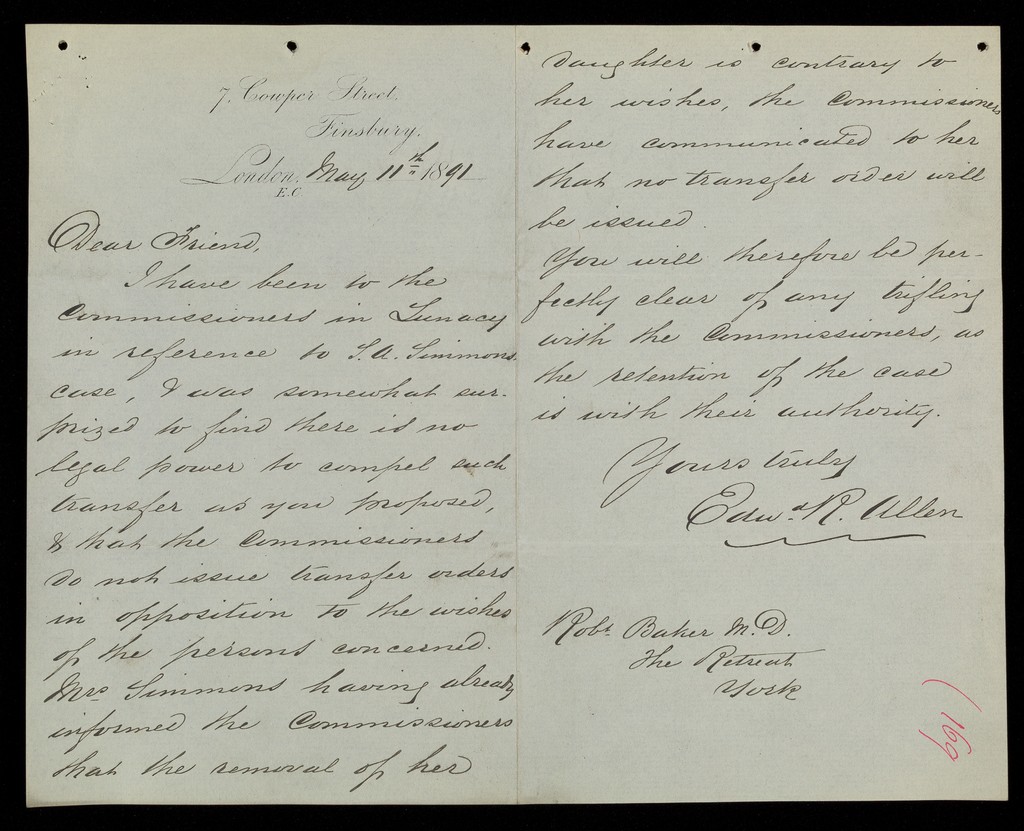 7, Cowper Street,
Finsbury,
London, May 11th 1891
E.C.
Dear Friend,
I have been to the
Commissioners in Lunacy
in reference to S. A. Simmons
case, & was somewhat sur-
prized to find there is no
legal power to compel such
transfer as you proposed,
& that the Commissioners
do not issue transfer orders
in opposition to the wishes
of the persons concerned.
Mrs Simmons having already
informed the Commissioners
that the removal of her
daughter is contrary to
her wishes, the Commissioners
have communicated to her
that no transfer order will
be issued.
You will therefore be per-
fectly clear of any trifling
with the Commissioners, as
the retention of the case
is with their authority.
Yours truly
Edwd R. Allen
Robt Baker M.D.
The Retreat
York
169